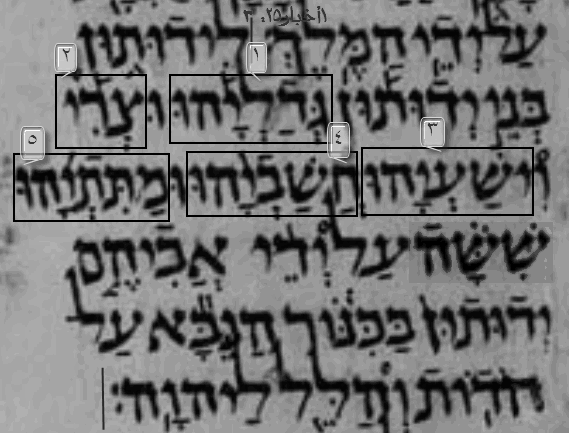 ١أخبار٢٥: ٣
עַל יְדֵי הַמֶּלֶךְ לִידוּתוּן
٢ ١
בְּנֵי יְדוּתוּן גְּדַלְיָהוּ וּצְרִי
٣ ٤ ٥
וִישַׁעְיָהוּ חֲשַׁבְיָהוּ וּמַתִּתְיָהוּ
שִׁשָּׁה עַל יְדֵי אֲבִיהֶם
יְדוּתוּן בַּכִּנּוֹר הַנִּבָּא עַל
הֹדוֹת וְהַלֵּל לַיהוָה׃